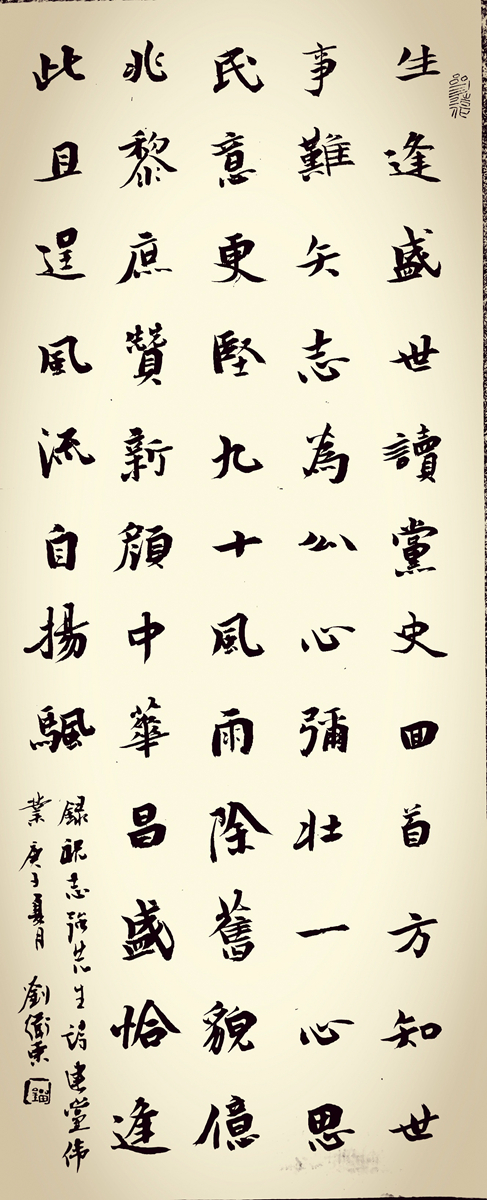 生逢盛世讀黨史回首方知世
事難矢志為公心彌壯一心思
民意更堅九十風雨除舊貌億
兆黎庶贊新顏中華昌盛恰逢
此且逞風流自揚颿
錄祝志先生詩建黨偉
業庚子夏月 劉衛東